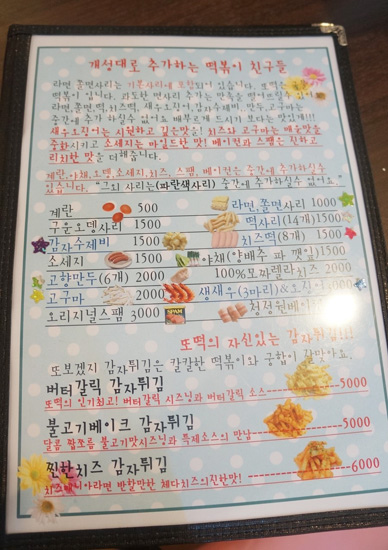 개성대로 추가하는 떡볶이 친구들
라면, 쫄면사리는 기본사리에 포함되어 있습니다. 또떡은
떡볶이 입니다. 과도한 면사리 추가는 만족을 떨어뜨릴수
라면,쫄면,떡,치즈떡, 새우오징어,감자수제비, 만두,고구마는
중간에 추가 하실수 없어요
새우오징어는 시원하고 깊은맛을! 치즈와 고구마는 매운맛을
중화시키고 소세지는 마일드한 맛! 베이컨과 스팸은 짭하고
리치한 맛을 더해줍니다.
계란,야채,오뎅,소세지,치즈, 스팸, 베이컨은 중간에 추가하실수
있습니다. "그외 사리는(파란색사리) 중간에 추가하실수 없어요."
계란 500 라면,쫄면사리 1000
구운오뎅사리 1500 떡사리(14개)1500
감자수제비 1500 치즈떡(8개) 1500
소세지 1500 야채(양배추 파 깻잎)1500
고향만두(6개) 2000 100%모짜렐라치즈 2000
고구마 2000 생새우(3마리)&오징어
오리지널스팸 3000 청정원베이컨
또떡의 자신있는 감자튀김!!!
또보겠지 감자튀김은 칼칼한 떡볶이와 궁합이 잘맞아요.
버터갈릭 감자튀김
또떡의 인기최고! 버터갈릭 시즈닝과 버터갈릭 소스 5000
불고기베이크 감자튀김
달콤 짭쪼름 불고기맛시즈닝과 특제소스의 만남 5000
찐한치즈 감자튀김
치즈매니아라면 반할만한 체다치즈의진한맛! 6000